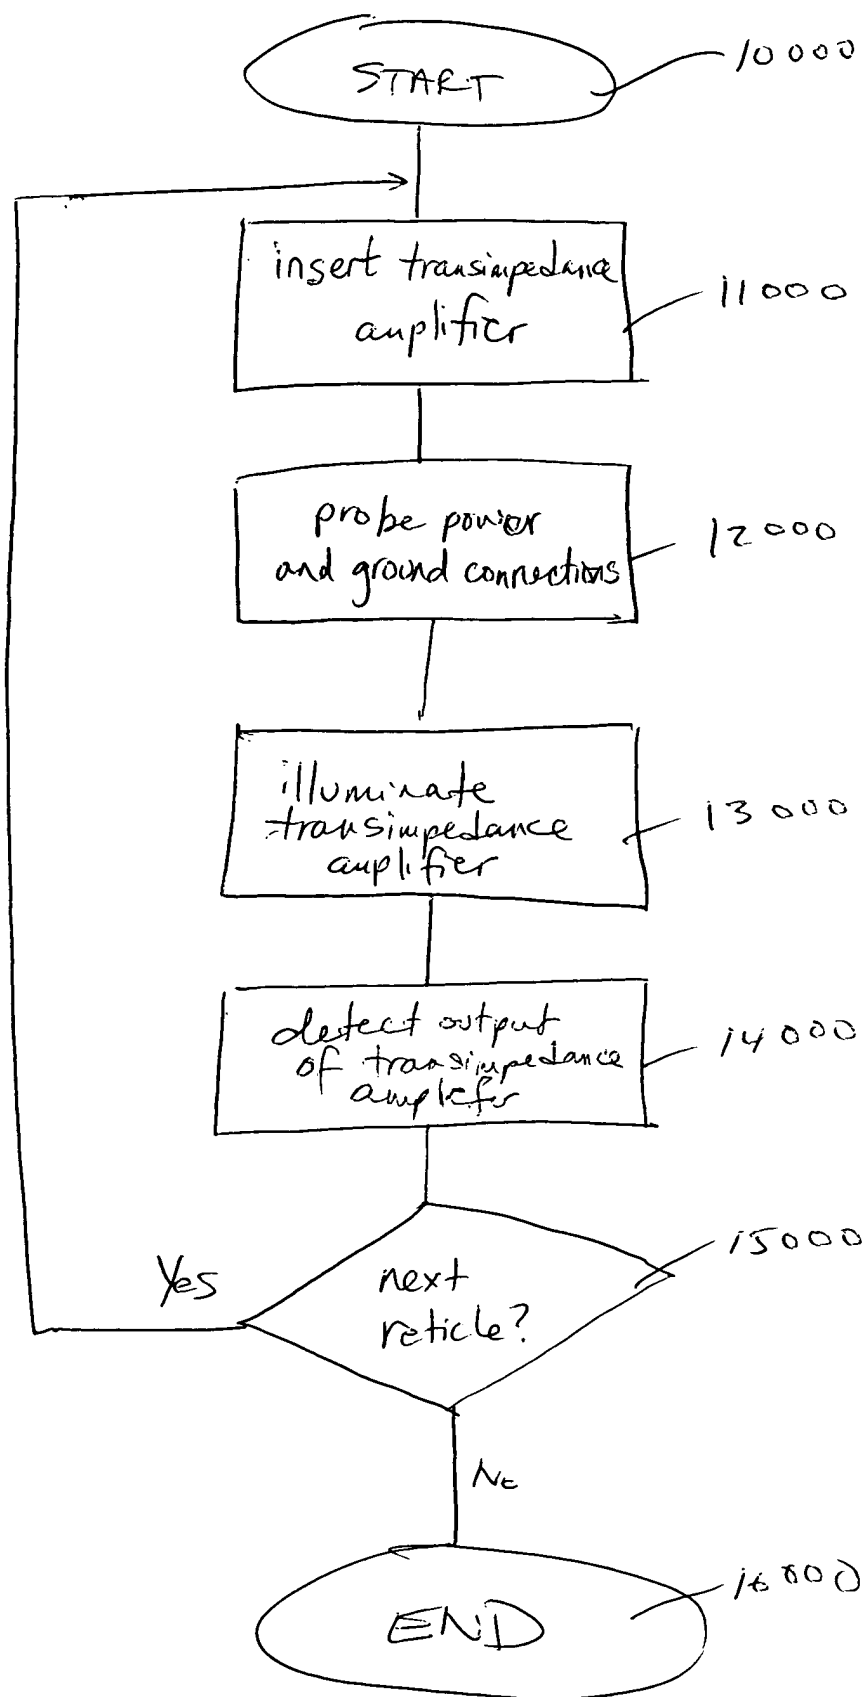 START
10000
insert transimpedance
amplifier
11000
probe power
and ground connections
12000
illuminate
transimpedance
amplifier
13000
detect output
of transimpedance
amplefer
14000
next
reticle?
15000
Yes
No
END
16000